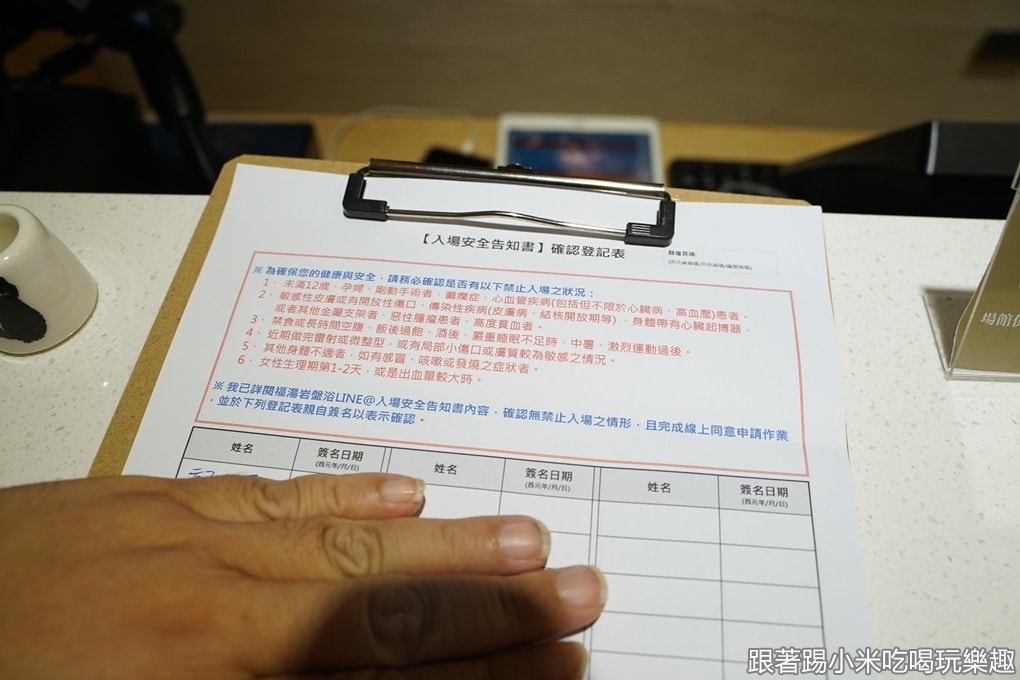 【入場安全告知書】確認登記表
※ 為確保您的健康與安全，請務必確認是否有以下禁止入場之狀況：
1、 未滿12歲、孕婦、剛動手術者、癲癇症、心血管疾病(包括但不限於心臟病、高血壓)患者。
2、 敏感性皮膚或有開放性傷口、傳染性疾病(皮膚病、結核開放期等)、身體帶有心臟起搏器，
或者其他金屬支架者、惡性腫瘤患者、高度貧血者。
3、 禁食或長時間空腹、飯後過飽、酒後、嚴重睡眠不足時、中暑、激烈運動過後。
4、 近期做完雷射或微整型，或有局部小傷口或膚質較為敏感之情況。
5、 其他身體不適者，如有感冒、咳嗽或發燒之症狀者。
6、 女性生理期第1-2天，或是出血量較大時。
※ 我已詳閱福湯岩盤浴LINE@入場安全告知書內容，確認無禁止入場之情形，且完成線上同意申請作業
，並於下列登記表親自簽名以表示確認。
姓名 簽名日期 姓名 簽名日期 姓名 簽名日期
(西元年/月/日) (西元年/月/日) (西元年/月/日)
場館供
跟著踢小米吃喝玩樂趣